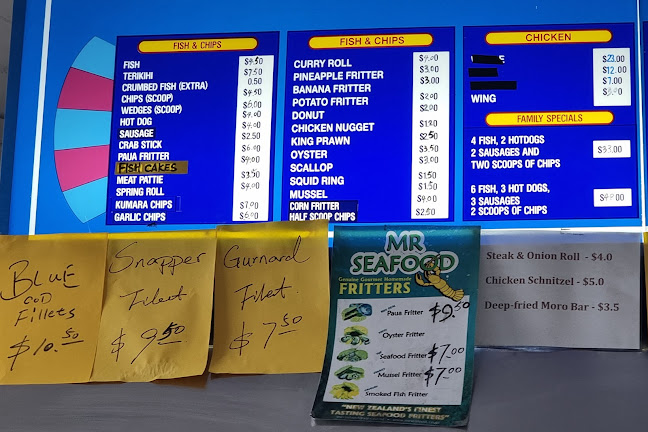 FISH & CHIPS
FISH $4.50
TERIKIHI $7.50
CRUMBED FISH (EXTRA) 0.50
CHIPS (SCOOP) $4.50
WEDGES (SCOOP) $6.00
HOT DOG $4.00
SAUSAGE $2.50
CRAB STICK $6.00
PAUA FRITTER $4.00
FISH CAKES
MEAT PATTIE $3.50
SPRING ROLL $4.00
KUMARA CHIPS $7.00
GARLIC CHIPS $6.00
FISH & CHIPS
CURRY ROLL $4.00
PINEAPPLE FRITTER $3.00
BANANA FRITTER
POTATO FRITTER $2.00
DONUT $2.00
CHICKEN NUGGET
KING PRAWN $2.50
OYSTER $3.50
SCALLOP $3.00
SQUID RING $1.50
MUSSEL $1.50
CORN FRITTER $4.00
HALF SCOOP CHIPS $2.50
CHICKEN
$23.00
$12.00
$7.00
WING
FAMILY SPECIALS
4 FISH, 2 HOTDOGS
2 SAUSAGES AND
TWO SCOOPS OF CHIPS
6 FISH, 3 HOT DOGS,
3 SAUSAGES
2 SCOOPS OF CHIPS
BLUE
COD
Fillets
$10.50
Snapper
Fillet
$9.50
Gurnard
Fillet
$7.50
MR
SEAFOOD
Genuine Gourmet Homemade
FRITTERS
Paua Fritter $9.50
Oyster Fritter
Seafood Fritter $7.00
Mussel Fritter $7.00
Smoked Fish Fritter
"NEW ZEALAND'S FINEST
TASTING SEAFOOD FRITTERS"
Steak & Onion Roll - $4.0
Chicken Schnitzel - $5.0
Deep-fried Moro Bar - $3.5